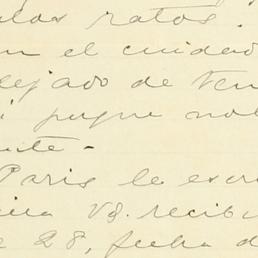 los ratos.
en el cuidad
dejado de ten
pugne no
ente.
Paris le escri
Vd. recibi
28, fecha d